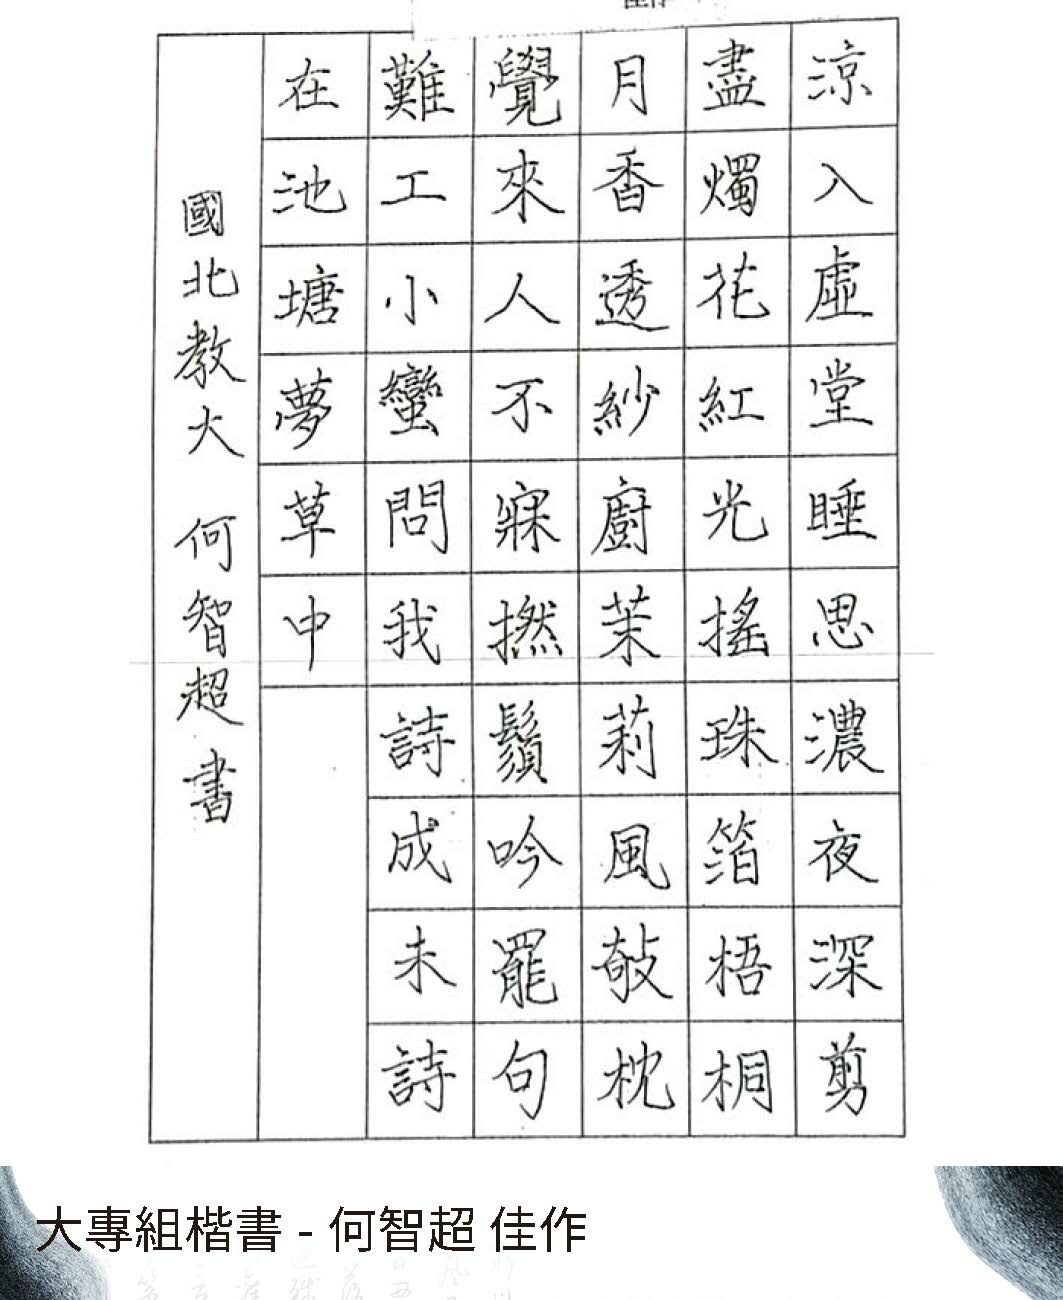 涼入虛堂睡思濃夜深剪
盡燭花紅光搖珠箔梧桐
月香透紗廚茉莉風敧枕
覺來人不寐撚鬚吟罷句
難工小蠻問我詩成未詩
在池塘夢草中
國北教大 何智超書
大專組楷書 - 何智超 佳作